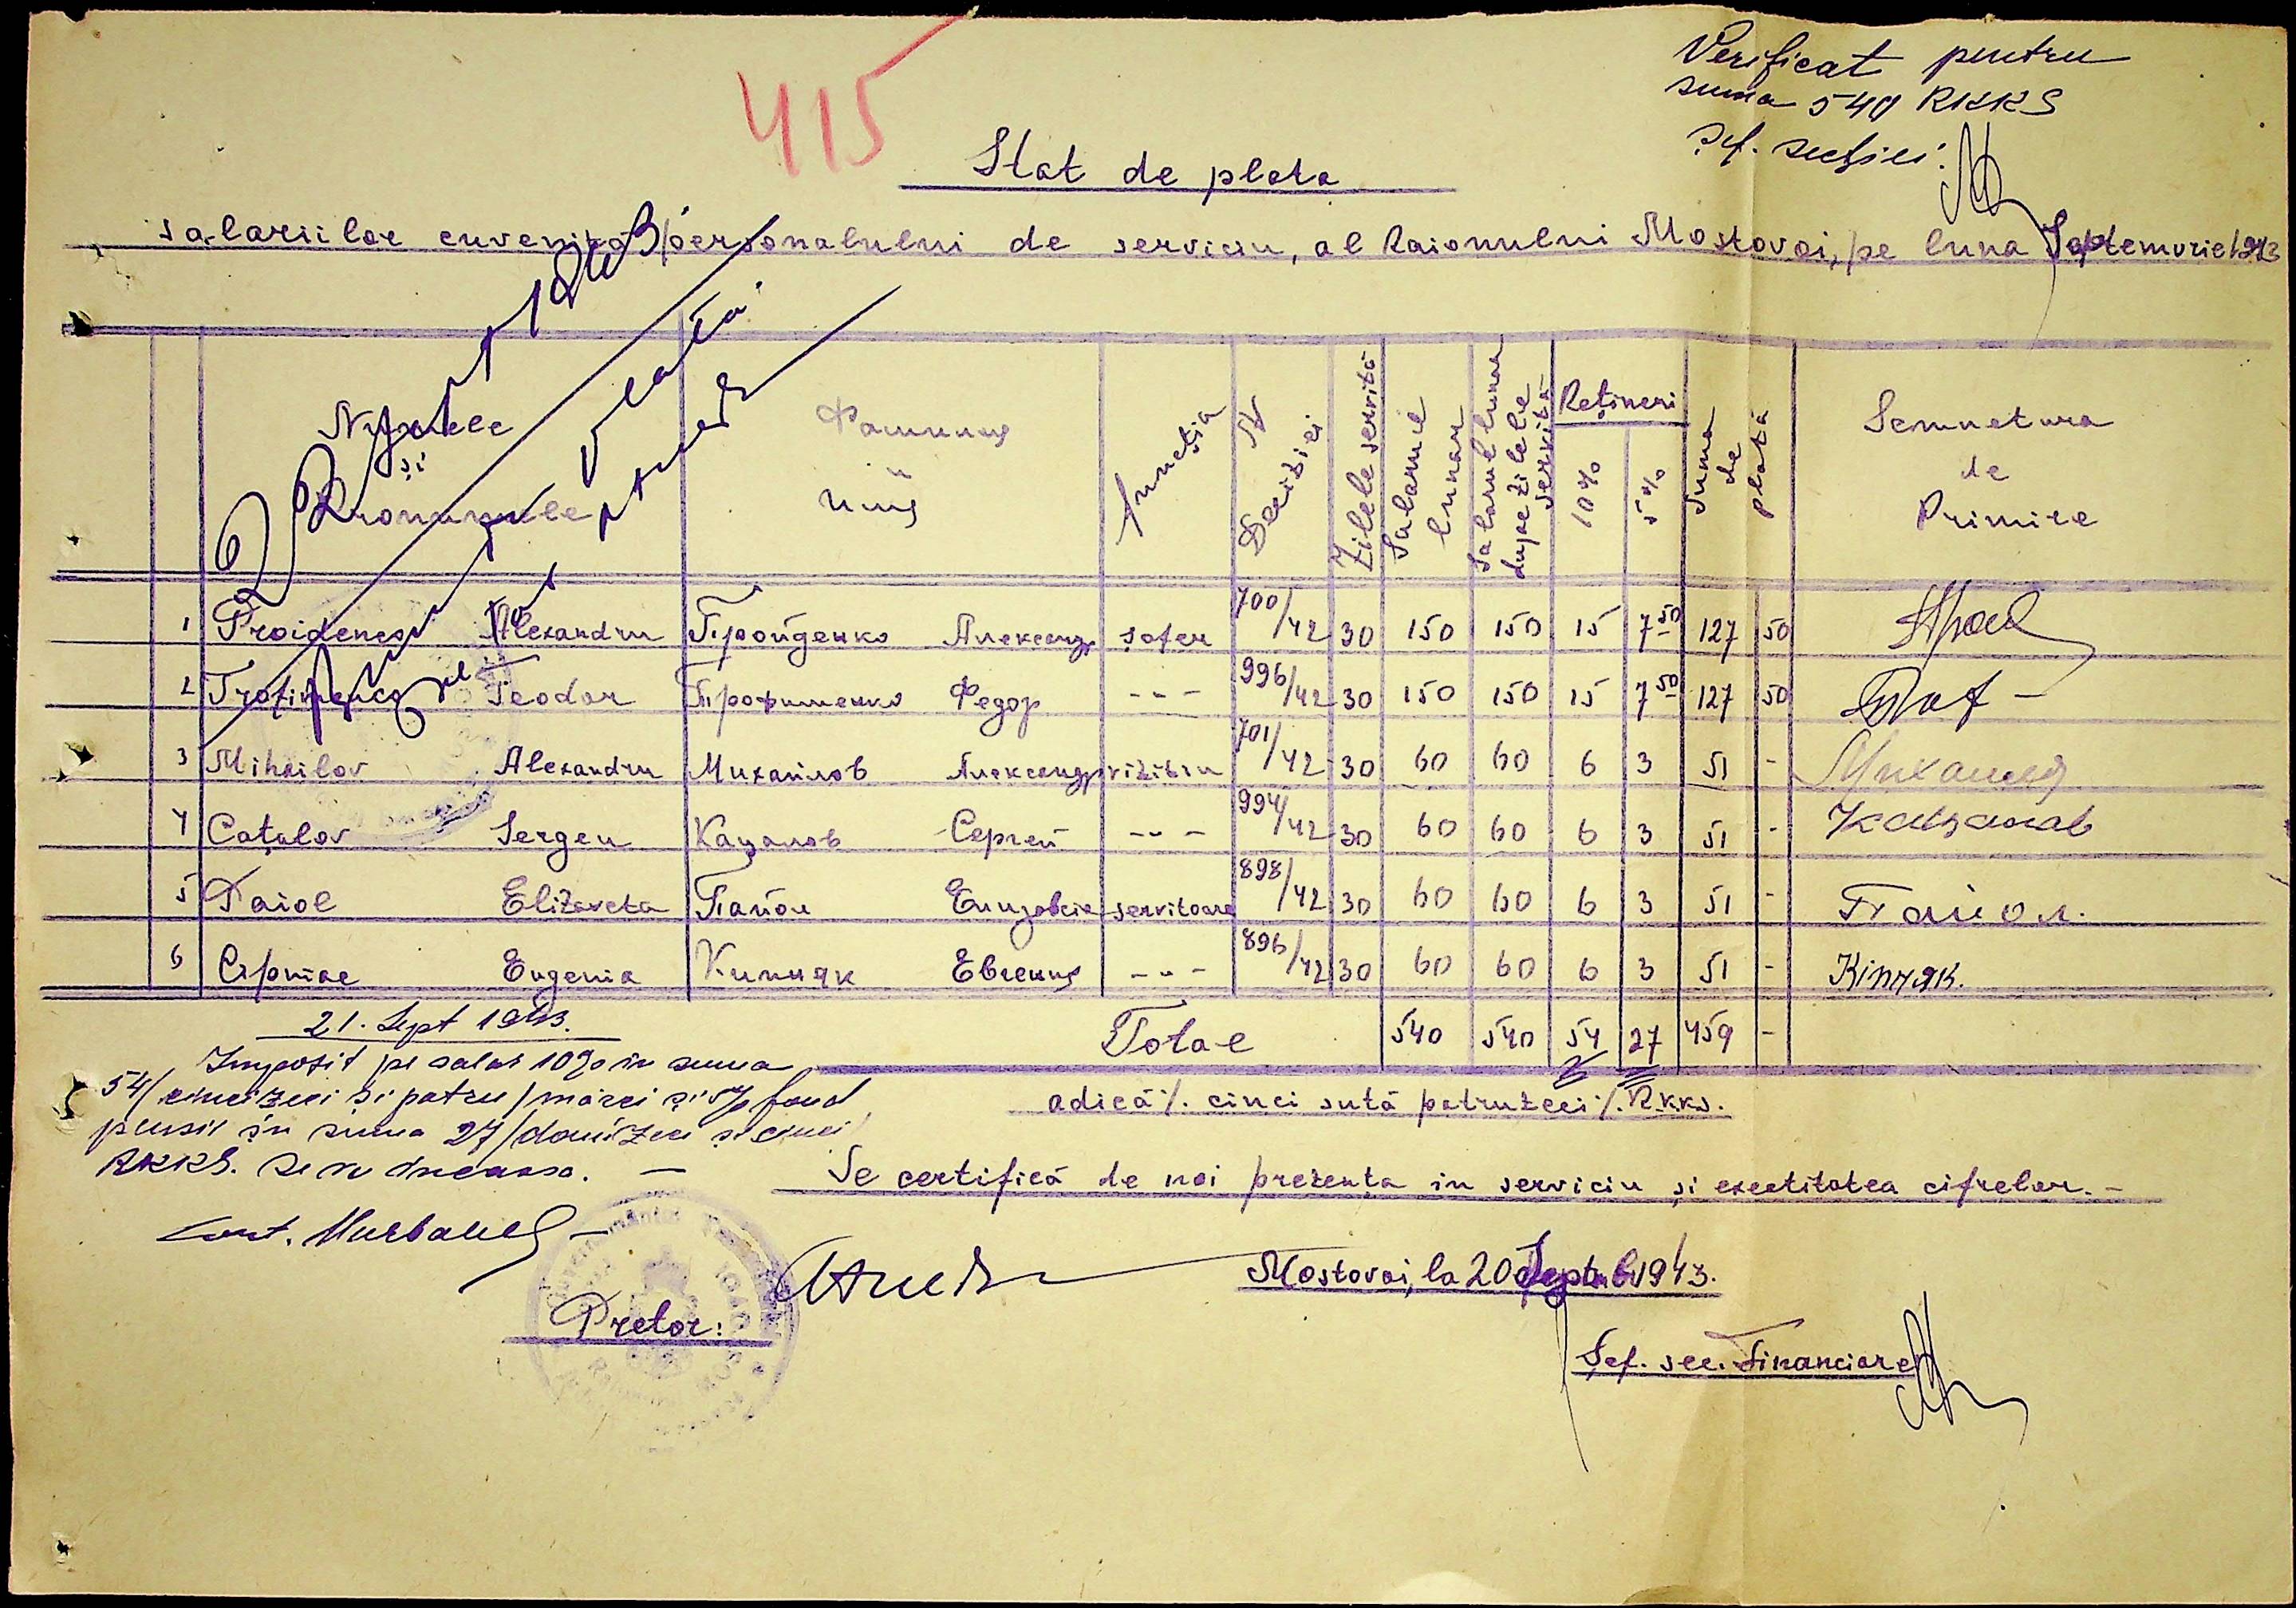 415
Verificat pentru
suma 540 RKKS
Șef. secției:
Stat de plata
salariilor cuvenită personalului de serviciu, al Raionului Mostovoi, pe luna Septemvrie 1943
Numele și Pronumele
Фамилия и Имя
Funcția
№ Deciziei
Zilele servită
Salarul lunar
Salarul lunar după zilele servită
Rețineri
10%
5%
Suma de plată
Semnetura de Primire
1 Proidenco Alexandru Пройденко Александр șofer 700/42 30 150 150 15 7 50 127 50
2 Trofimenco Teodor Трофименко Федор -"- 996/42 30 150 150 15 7 50 127 50
3 Mihailov Alexandru Михайлов Александр vizitiu 701/42 30 60 60 6 3 51 - Михайлов
4 Cațalov Sergeu Кацалов Сергей -"- 994/42 30 60 60 6 3 51 - Кацалов
5 Paiol Elizaveta Пайол Елизавета servitoare 898/42 30 60 60 6 3 51 - Пайол.
6 Eugenia Кипняк Евгения -"- 896/42 30 60 60 6 3 51 - Кіпняк.
Total 540 540 54 27 459 -
21. Sept 1943.
Impozit pe salar 10% in suma
54/cincizeci și patru/mărci și 5% fond
pensie în suma 27/douăzeci și cinci/
RKKS. se va încasa. —
Cont.
adică /. cinci sută patruzeci /. R.K.K.S.
Se certifică de noi prezența in serviciu și exectitatea cifrelor. -
Mostovoi, la 20 1943.
Pretor:
Șef. sec. Financiare